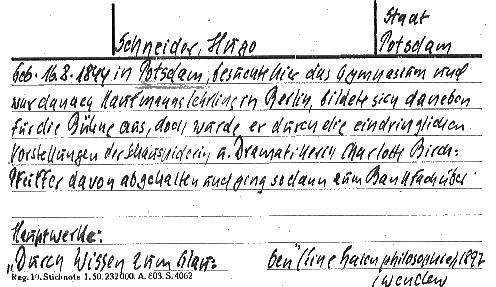 Stadt
Schneider, Hugo Potsdam
Geb. 16.8.1844 in Potsdam, besuchte hier das Gymnasium und
war danach Kaufmannslehrling in Berlin, bildete sich daneben
für die Bühne aus, doch wurde er durch die eindringlichen
Vorstellungen der Schauspielerin u. Dramatikerin Charlotte Birch-
Pfeiffer davon abgehalten und ging sodann zum Bankfach über.
Hauptwerke:
"Durch Wissen zum Glau- ben" (eine 1897
Reg. 10. Stichnote 1. 50. 232000. A. 803. S. 4062